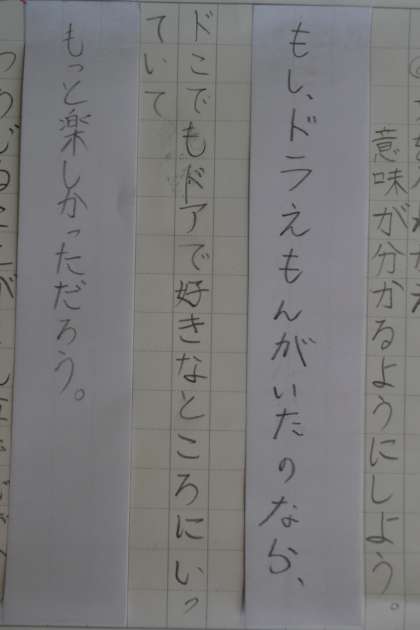 意味が分かるようにしよう。
もし、ドラえもんがいたのなら、
ドこでもドアで好きなところにいっ
ていて
もっと楽しかっただろう。